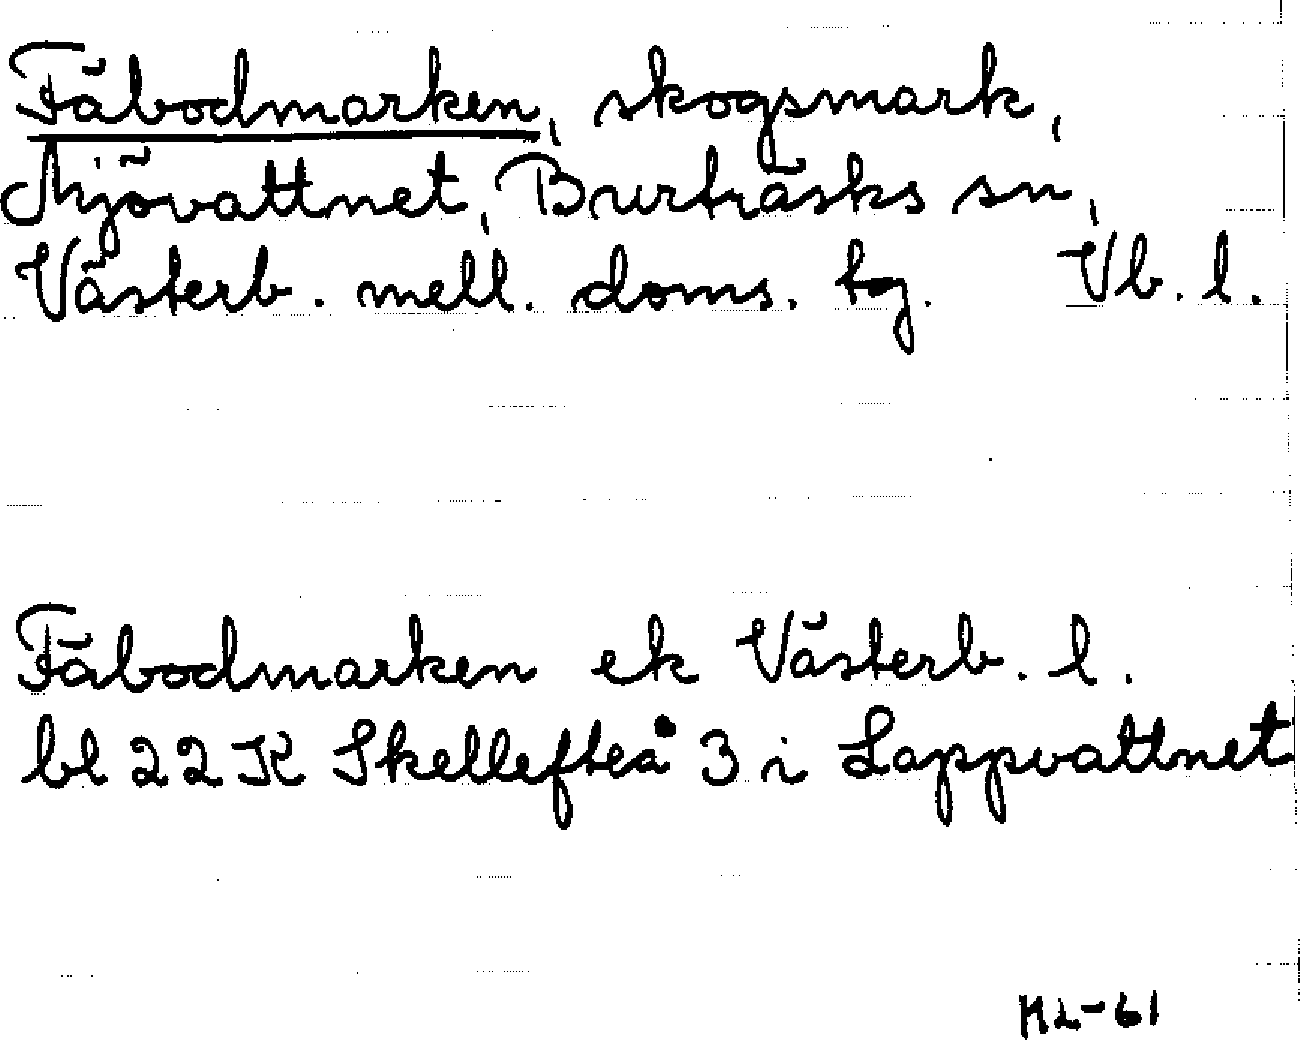 Fäbodmarken, skogsmark,
Mjövattnet, Burträsks sn,
Västerb. mell. doms. tg. Vb. l.
Fäbodmarken ek Västerb. l.
bl 22 K Skellefteå 3 i Lappvattnet